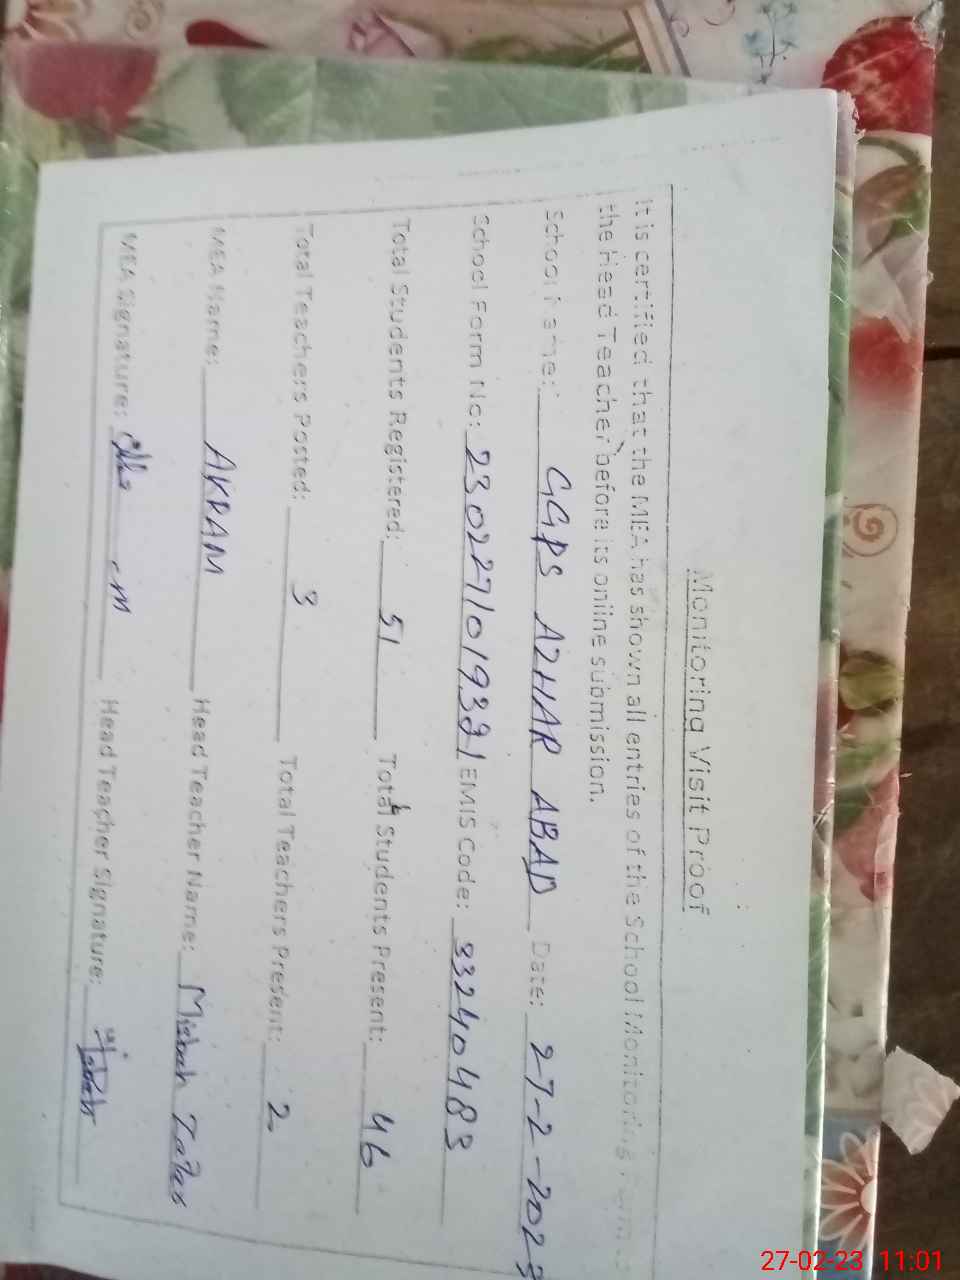 Monitoring Visit Proof
It is certified that the MEA has shown all entries of the School Monitoring Form to
the Head Teacher before its online submission.
School Name: GGPS AZHAR ABAD Date: 27-2-2023
School Form No: EMIS Code: 33240483
Total Students Registered: 51 Total Students Present: 46
Total Teachers Posted: 3 Total Teachers Present: 2
MEA Name: AKRAM Head Teacher Name: Misbah Zafar
MEA Signature: Head Teacher Signature: Misbah
27-02-23 11:01